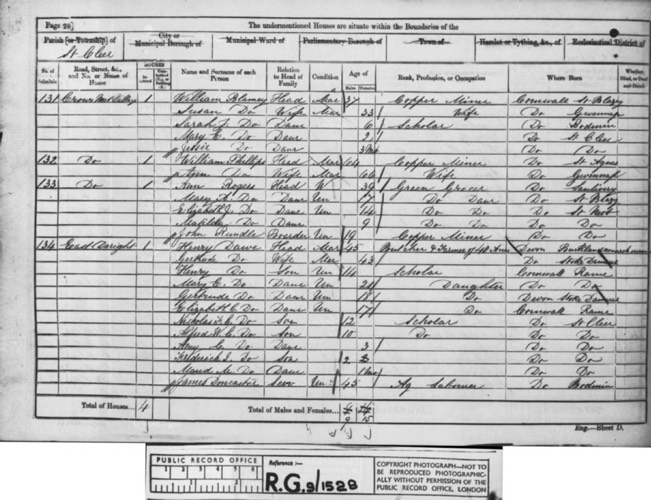 Page 26]
The undermentioned Houses are situate within the Boundaries of the
Parish [or Township] of
City or Municipal Borough of
Municipal Ward of
Parliamentary Borough of
Town of
Hamlet or Tything, &c., of
Ecclesiastical District of
St Cleer
No. of Schedule
Road, Street, &c., and No. or Name of House
HOUSES
Name and Surname of each Person
Relation to Head of Family
Condition
Age of
Males
Females
Rank, Profession, or Occupation
Where Born
Whether Blind, or Deaf-and-Dumb
131 1 William Blamey Head Mar 37 Copper Miner Cornwall St Blazy
Susan Do Wife Mar 33 Wife Do Gwennap
Sarah J. Do Daur 6 Scholar Do Bodmin
Mary E. Do Daur 2 Do St Cleer
Jessie Do Daur Do Do
132 Do 1 William Phillips Head Mar 64 Copper Miner Do St Agnes
Do Wife Mar 66 Wife Do Gwennap
133 Do 1 Ann Rogers Head W 39 Green Grocer Do
Mary A. Do Daur Un 17 Do Daur Do St Blazy
Elizabeth J. Do Daur Un 14 Do Do Do St Neot
Matilda Do Daur 9 Do Do Do Do
John Rundle Boarder Un 19 Copper Miner Do Do
134 1 Henry Dawe Head Mar 45 Butcher & Farmer of Devon
Gertrude Do Wife Mar 43 Do
Henry Do Son Un 14 Scholar Cornwall Rame
Mary E. Do Daur Un 20 Daughter Do Do
Gertrude Do Daur Un 18 Do Devon
Elizabeth C. Do Daur Un 17 Do Cornwall Rame
Nicholas Do Son 12 Scholar Do St Cleer
Alfred W. C. Do Son 10 Do Do Do
Amy C. Do Daur 3 Do Do
Frederick J. Do Son 2 Do Do
Maud M. Do Daur Do Do
James Doncaster Serv Un 45 Ag Labourer Do Bodmin
Total of Houses... 4
Total of Males and Females...
9 15
Eng.—Sheet D.
PUBLIC RECORD OFFICE
1 2 3 4 5 6
Reference :—
R.G. 9/1528
COPYRIGHT PHOTOGRAPH—NOT TO
BE REPRODUCED PHOTOGRAPHIC-
ALLY WITHOUT PERMISSION OF THE
PUBLIC RECORD OFFICE, LONDON